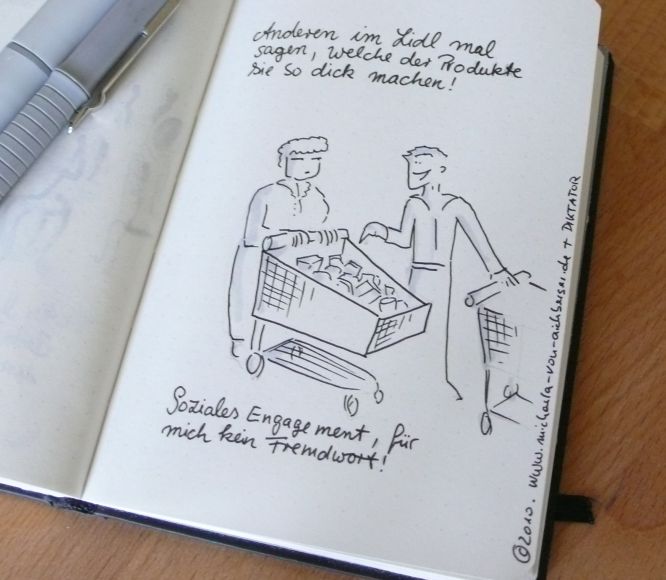 Anderen im Lidl mal
sagen, welche der Produkte
sie so dick machen!
Soziales Engagement, für
mich kein Fremdwort!
©2010. www.michaela-von-aichberger.de + DIKTATOR